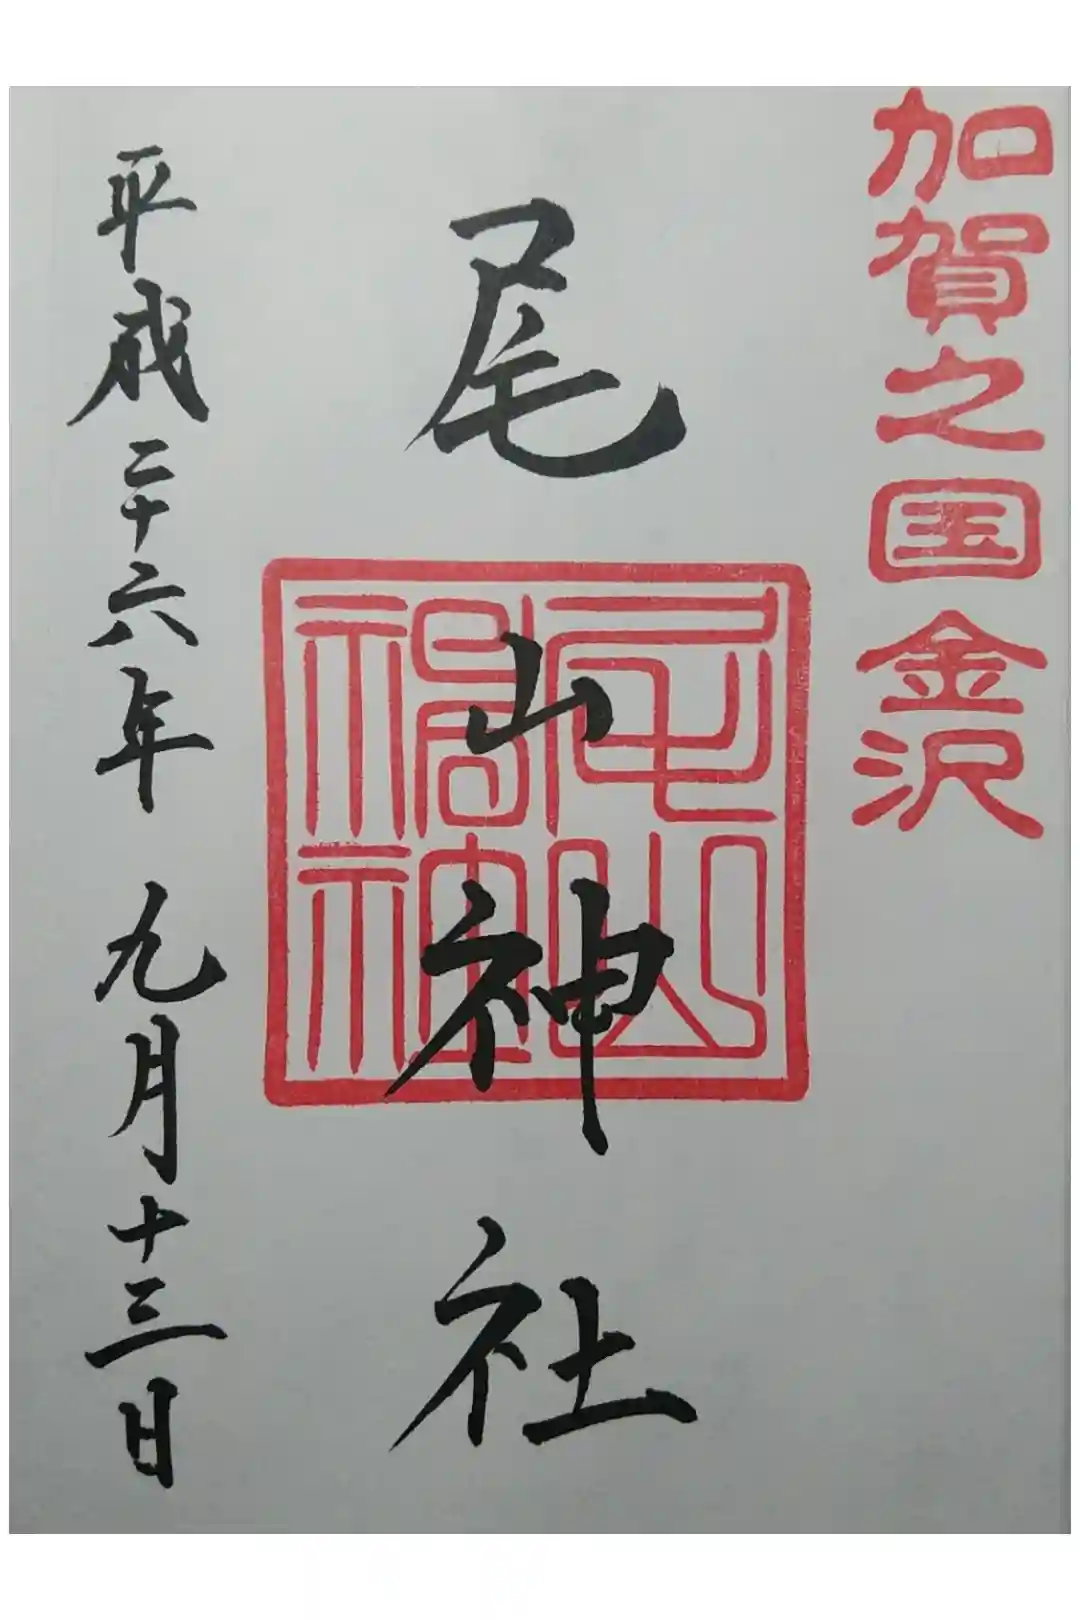 加賀之国金沢
尾山神社
平成二十六年九月十三日